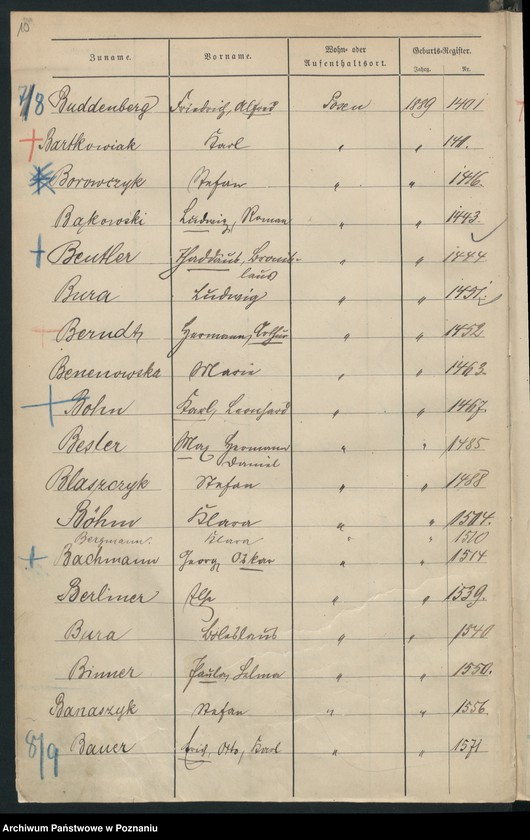 18
Zuname. Vorname. Wohn- oder Aufenthaltsort. Geburts-Register.
Jahrg. Nr.
7/8 Buddenberg Friedrich, Alfred Posen 1889 1401
Bartkowiak Karl " "
Borowczyk Stefan " " 1416.
Bąkowski Ludwig, Roman " " 1443.
Beutler Thaddäus, Bronis- " " 1444
laus
Bura Ludwig " " 1451.
Berndt Hermann, Arthur " " 1452
Benenowska Marie " " 1463.
Bohn Karl, Leonhard " " 1467.
Besler Max Hermann " " 1485
Daniel
Blaszczyk Stefan " " 1488
Böhm Klara " "
Bergmann. Klara " " 1510
Bachmann Georg Oskar " " 1514
Berliner Ilse " " 1539.
Bura Boleslaus " " 1540
Binner Paula, Selma " " 1550.
Banaszyk Stefan " " 1556
8/9 Bauer Erich, Otto, Karl " " 1571
Archiwum Państwowe w Poznaniu